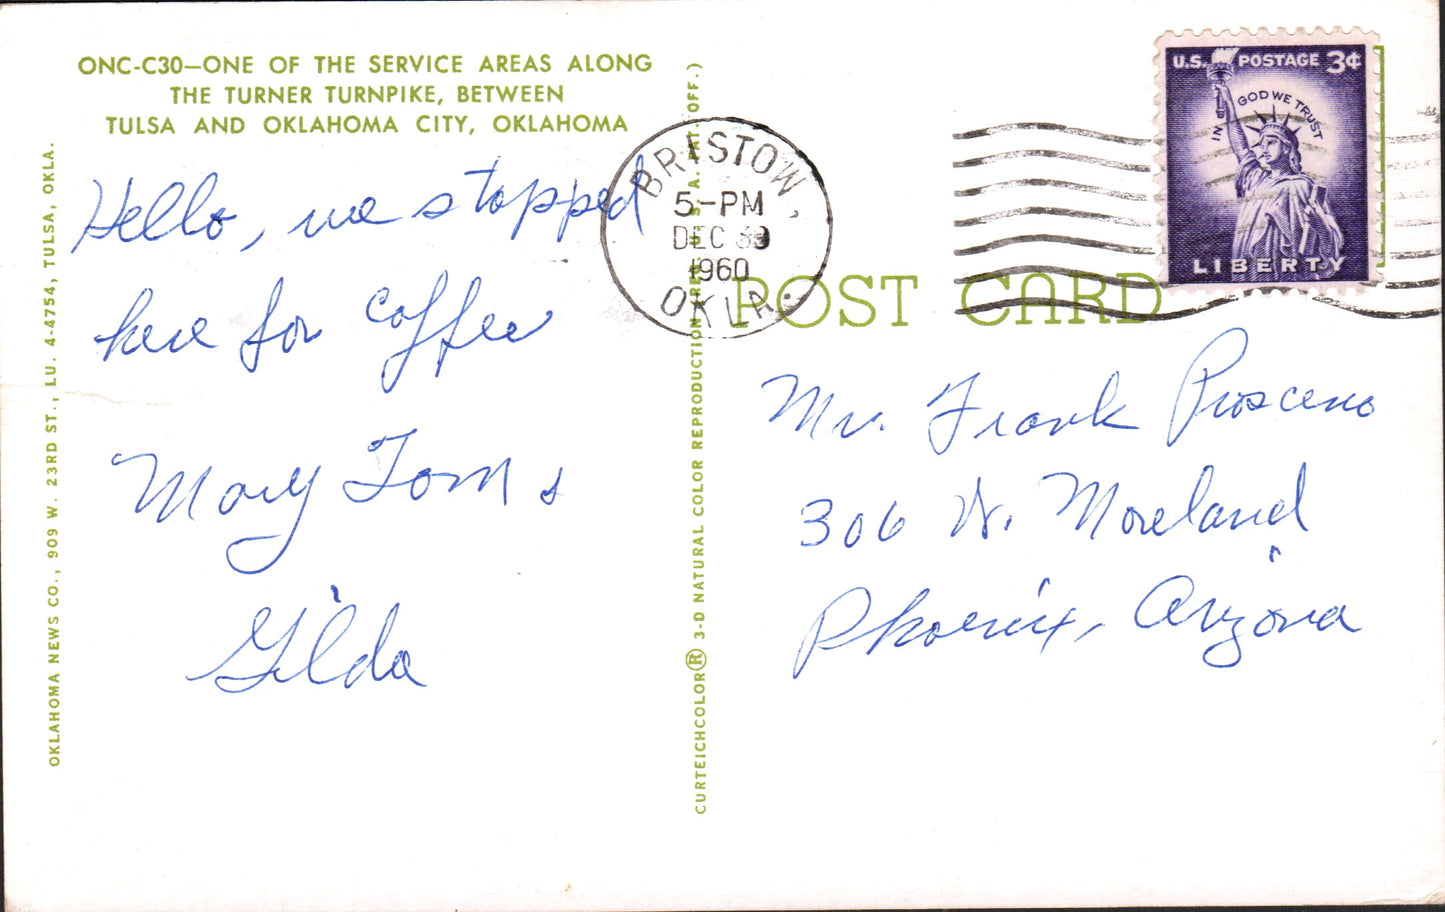 ONC-C30—ONE OF THE SERVICE AREAS ALONG
THE TURNER TURNPIKE, BETWEEN
TULSA AND OKLAHOMA CITY, OKLAHOMA
Hello, we stopped
here for coffee
Mary Tom &
Gilda
OKLAHOMA NEWS CO., 909 W. 23RD ST., LU. 4-4754, TULSA, OKLA.
CURTEICHCOLOR® 3-D NATURAL COLOR REPRODUCTION (REG. U.S.A. PAT. OFF.)
BRISTOW,
5-PM
DEC
1960
OKLA.
U.S. POSTAGE 3¢
IN GOD WE TRUST
LIBERTY
POST CARD
Mr. Frank Prosceno
306 W. Moreland
Phoenix, Arizona